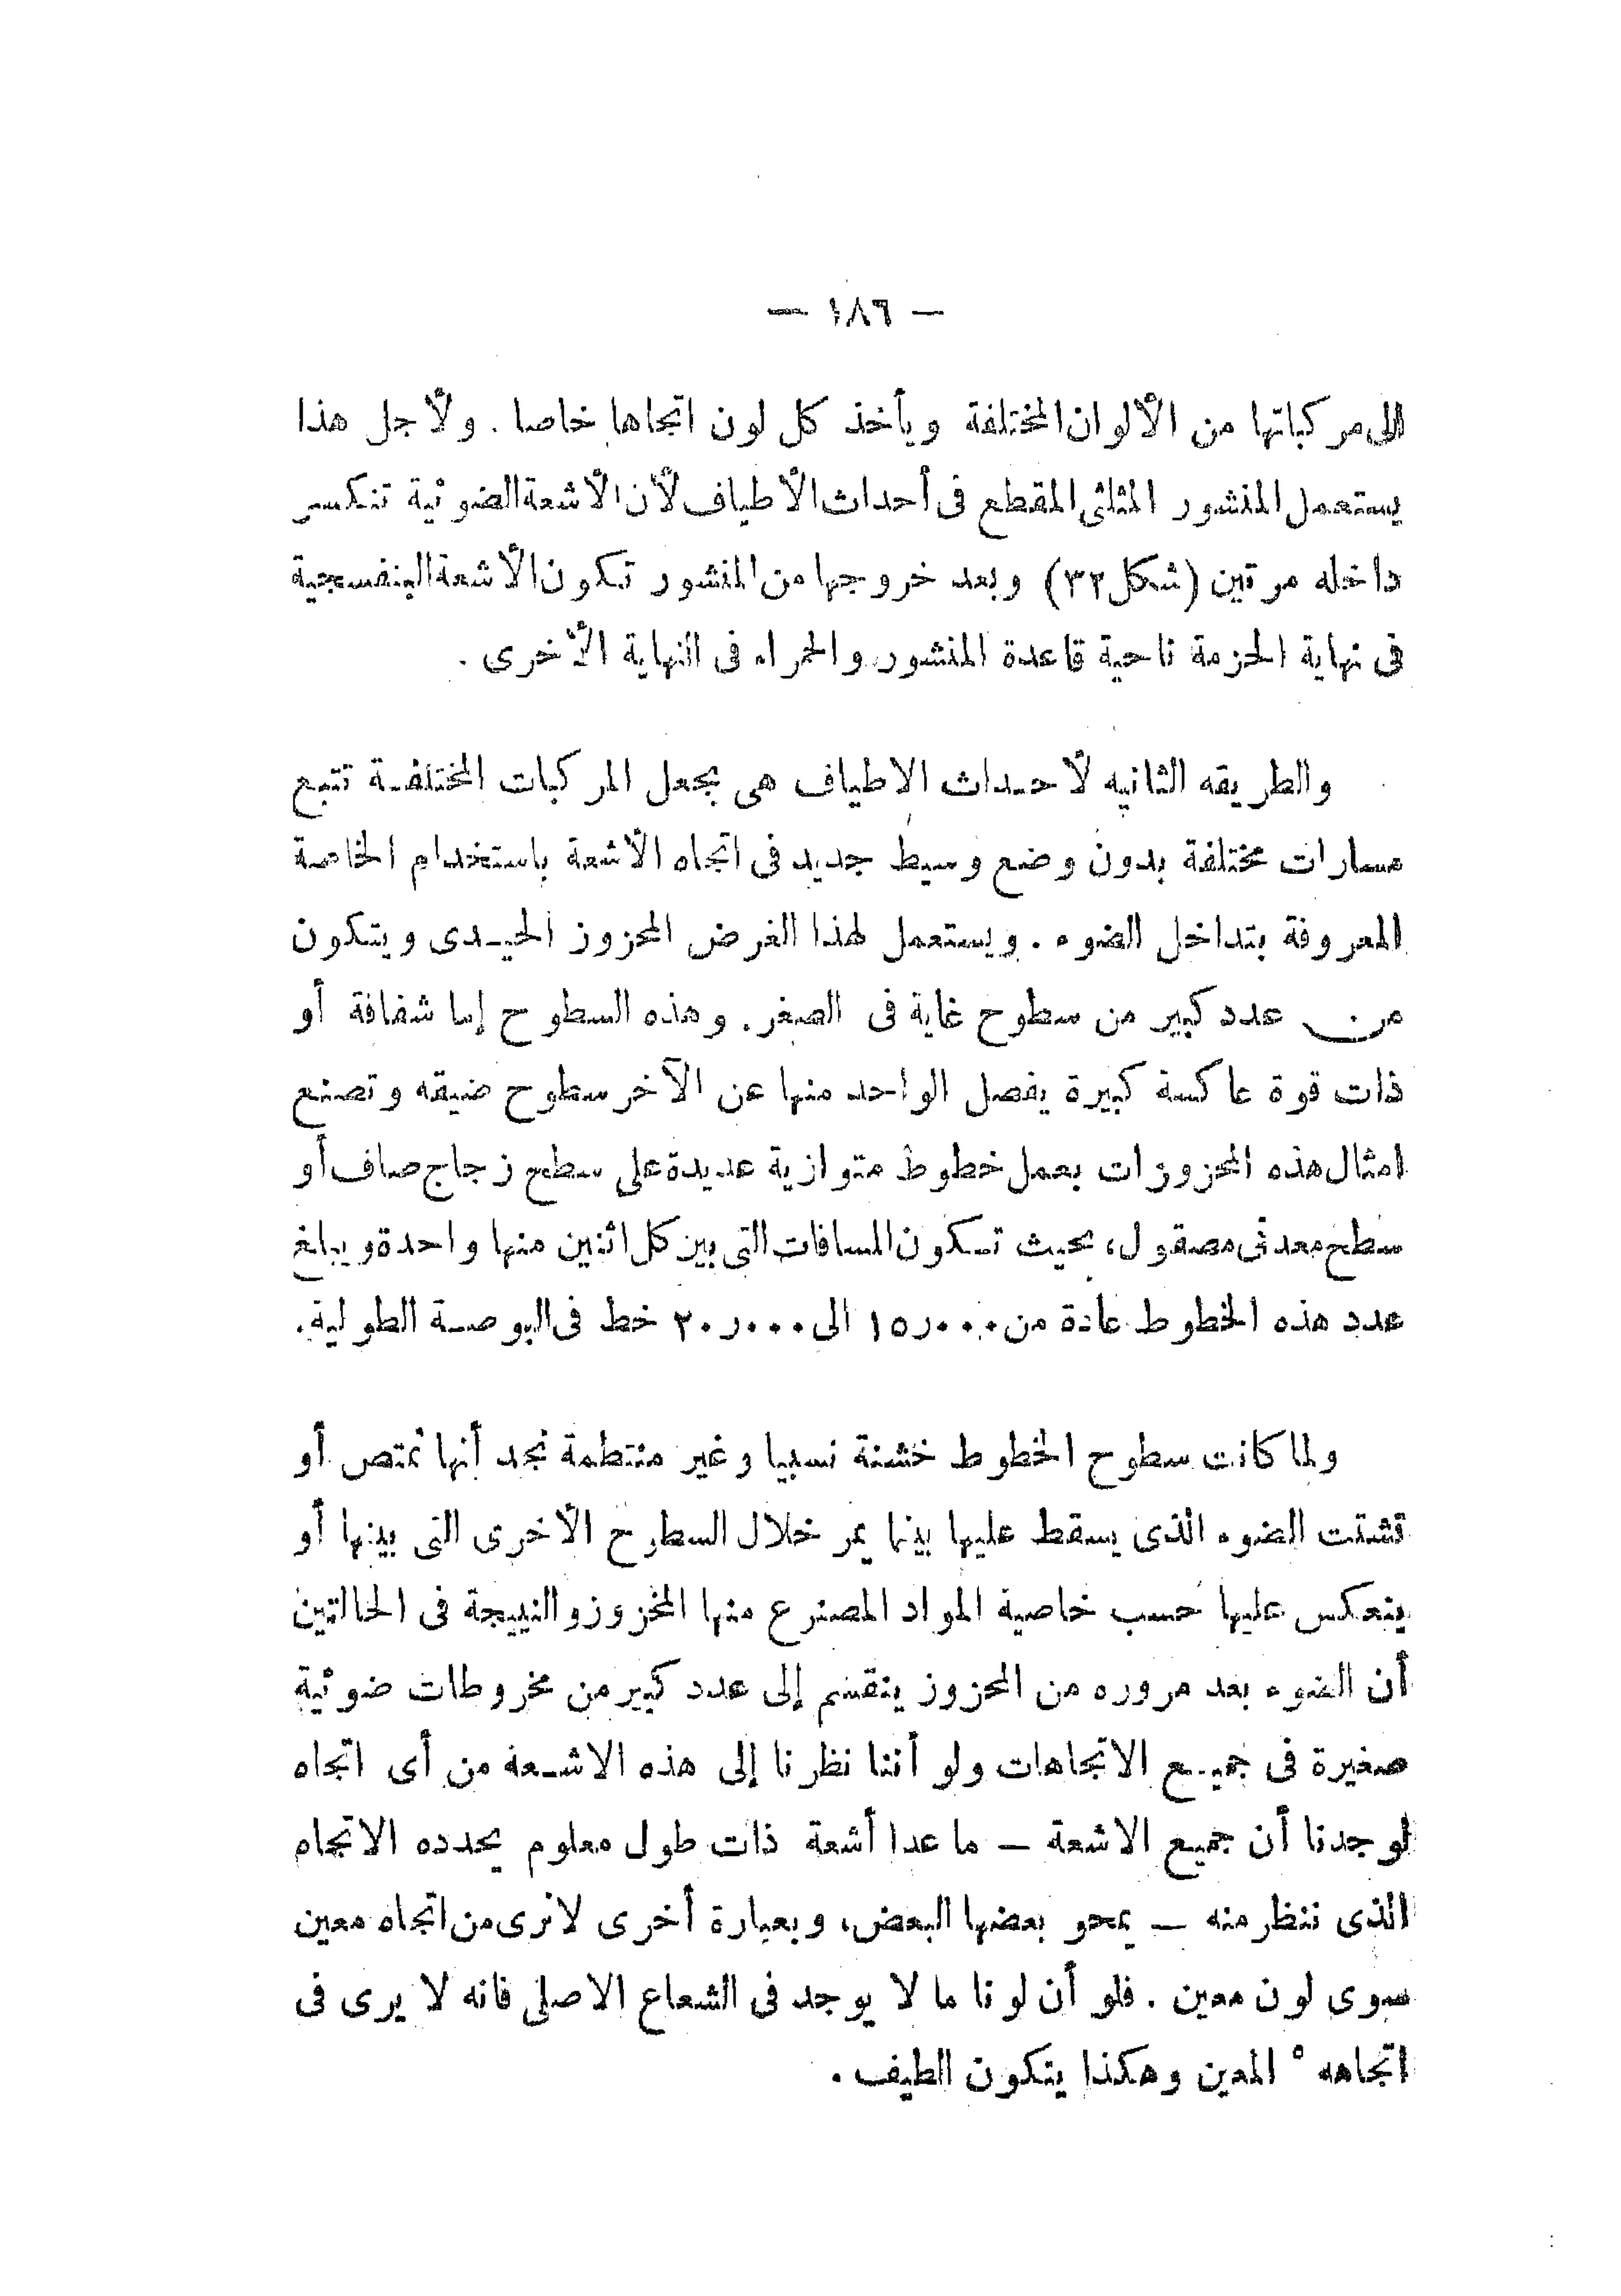 — ١٨٦ —
إلى مركباتها من الألوان المختلفة ويأخذ كل لون اتجاها خاصا . ولأجل هذا
يستعمل المنشور المثلثى المقطع فى أحداث الأطياف لأن الأشعة الضوئية تنكسر
داخله مرتين (شكل ٣٢) وبعد خروجها من المنشور تكون الأشعة البنفسجية
فى نهاية الحزمة ناحية قاعدة المنشور والحمراء فى النهاية الأخرى .
والطريقه الثانيه لأحداث الاطياف هى بجعل المركبات المختلفة تتبع
مسارات مختلفة بدون وضع وسيط جديد فى اتجاه الأشعة باستخدام الخاصة
المعروفة بتداخل الضوء . ويستعمل لهذا الغرض المحزوز الحيدى ويتكون
من عدد كبير من سطوح غاية فى الصغر . وهذه السطوح إما شفافة أو
ذات قوة عاكسة كبيرة يفصل الواحد منها عن الآخر سطوح ضيقه وتصنع
امثال هذه المحزوزات بعمل خطوط متوازية عديدة على سطح زجاج صاف أو
سطح معدنى مصقول، بحيث تكون المسافات التى بين كل اثنين منها واحدة ويبلغ
عدد هذه الخطوط عادة من ١٥٫٠٠٠ الى ٢٠٫٠٠٠ خط فى البوصة الطولية .
ولما كانت سطوح الخطوط خشنة نسبيا وغير منتظمة نجد أنها تمتص أو
تشتت الضوء الذى يسقط عليها بينما يمر خلال السطوح الأخرى التى بينها أو
ينعكس عليها حسب خاصية المواد المصنوع منها المخزوز والنتيجة فى الحالتين
أن الضوء بعد مروره من المحزوز ينقسم إلى عدد كبير من مخروطات ضوئية
صغيرة فى جميع الاتجاهات ولو أننا نظرنا إلى هذه الاشعة من أى اتجاه
لوجدنا أن جميع الاشعة — ما عدا أشعة ذات طول معلوم يحدده الاتجاه
الذى ننظر منه — يمحو بعضها البعض، وبعبارة أخرى لا نرى من اتجاه معين
سوى لون معين . فلو أن لونا ما لا يوجد فى الشعاع الاصلى فانه لا يرى فى
اتجاهه المعين وهكذا يتكون الطيف .